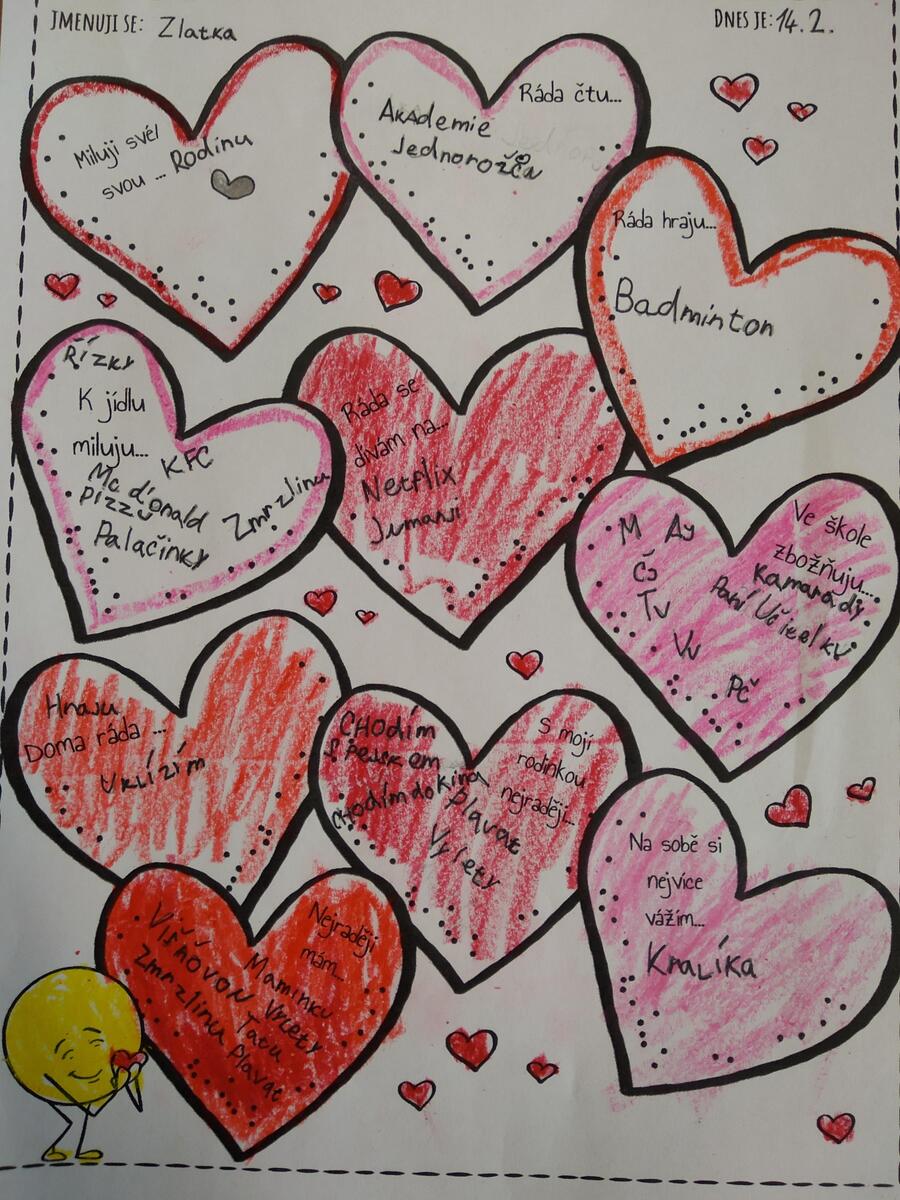 JMENUJI SE: Zlatka
DNES JE: 14. 2.
Miluji své/
svou ... Rodinu
Ráda čtu...
Akademie
Jednorožců
Ráda hraju...
Badminton
Řízky
K jídlu
miluju...
KFC
Mc d'onald
pizzu
Zmrzlinu
Palačinky
Ráda se
dívám na...
Netflix
Jumanji
Ve škole
zbožňuju...
Kamarády
Paní Učitelky
M Aj
Čj
Tv
Vv
Pč
Hraju
Doma ráda ...
Uklízím
S mojí
rodinkou
nejraději...
CHODÍM
S Pejskem
chodím do Kina
Plavat
Výlety
Na sobě si
nejvíce
vážím...
Kralíka
Nejraději
mám...
Maminku
Višňovou
Zmrzlinu
Výlety
Tatu
Plavat